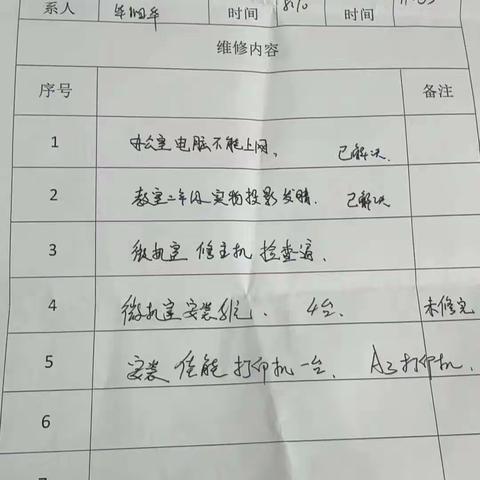 系人 时间 8:10 时间
维修内容
序号 备注
1 办公室电脑不能上网、 已解决.
2 教室二年级实物投影发暗. 已解决
3 微机室 修主机 检查
4 微机室安装系统、 4台. 未修完
5 安装佳能打印机一台. A3打印机.
6